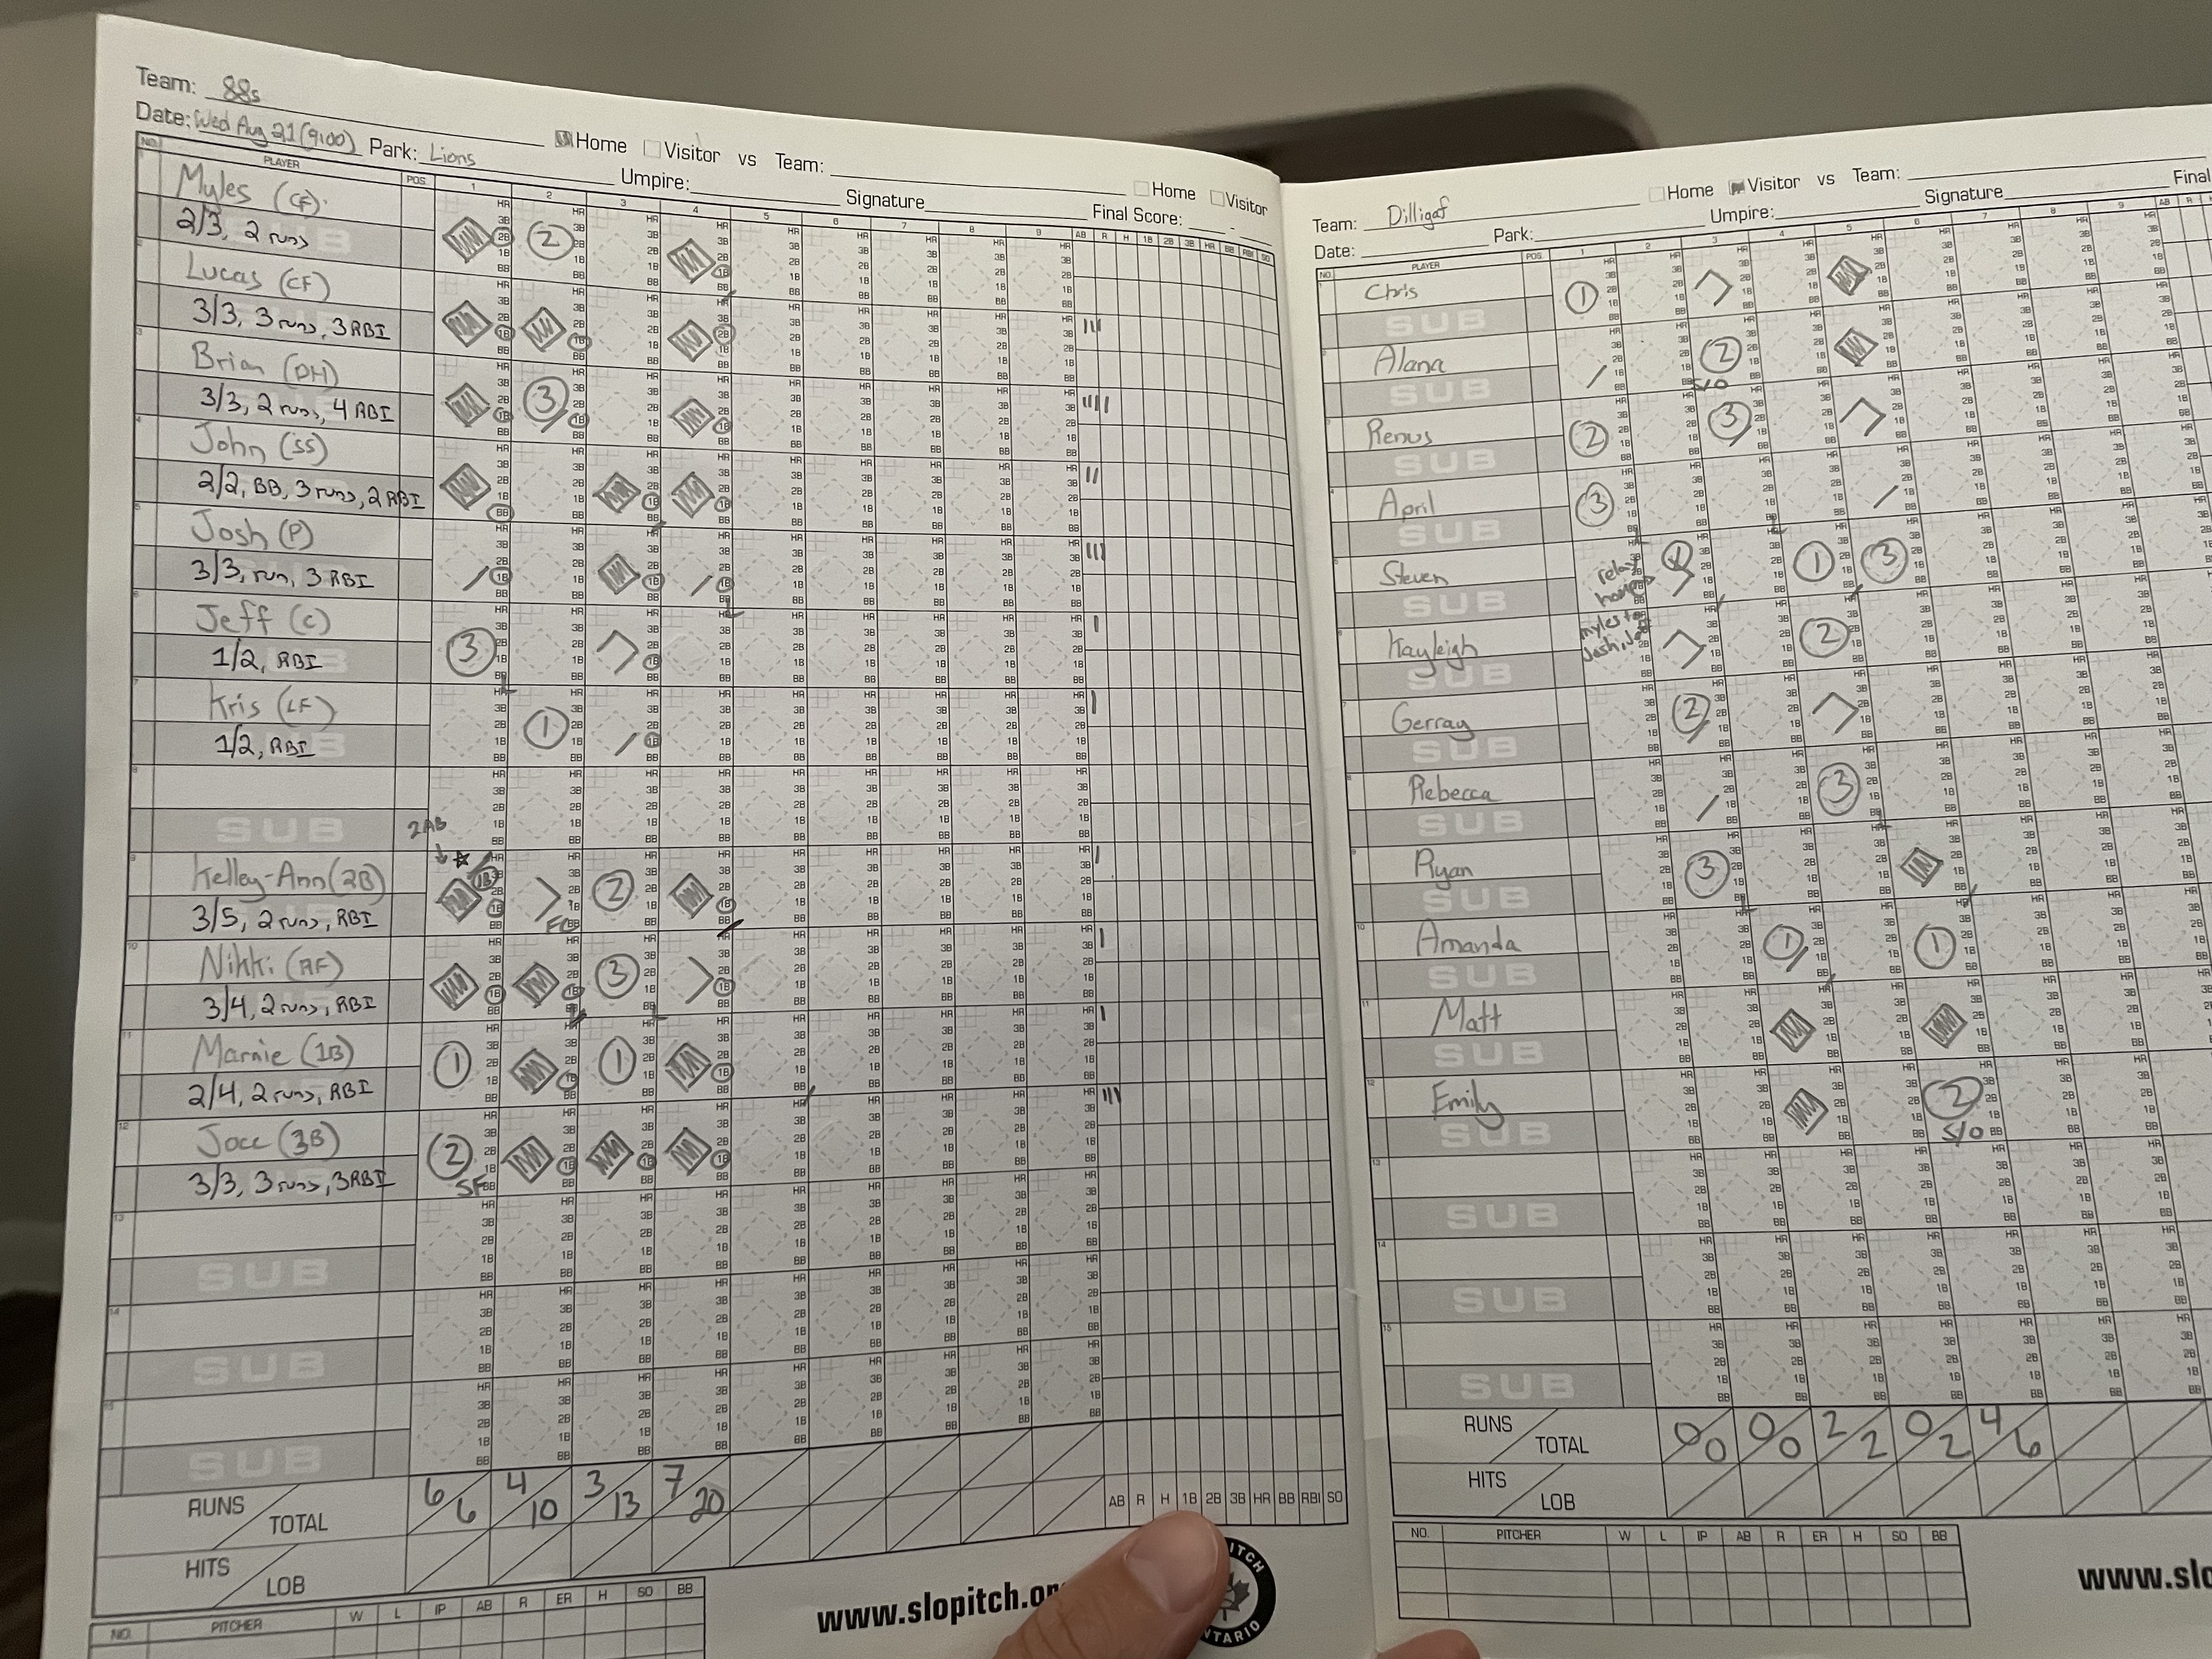 Team: 88s
Date: Wed Aug 21 (9:00) Park: Lions Home Visitor vs Team: Home Visitor
Umpire: Signature Final Score: -
NO. PLAYER POS. 1 2 3 4 5 6 7 8 9 AB R H 1B 2B 3B HR BB RBI SO
Myles (CF)
2/3, 2 runs
2
Lucas (CF)
3/3, 3 runs, 3 RBI
Brian (DH)
3/3, 2 runs, 4 RBI
3
John (SS)
2/2, BB, 3 runs, 2 RBI
Josh (P)
3/3, run, 3 RBI
Jeff (C)
1/2, RBI
3
Kris (LF)
1/2, RBI
1
SUB
2AB
Kelley-Ann (2B)
3/5, 2 runs, RBI
1B
FC
2
Nikki (RF)
3/4, 2 runs, RBI
3
Marnie (1B)
2/4, 2 runs, RBI
1 1
Joce (3B)
3/3, 3 runs, 3 RBI
2
SF
13
SUB
14
SUB
15
SUB
RUNS TOTAL 6/6 4/10 3/13 7/20
AB R H 1B 2B 3B HR BB RBI SO
HITS LOB
NO. PITCHER W L IP AB R ER H SO BB
www.slopitch.or
Team: Dilligaf Home Visitor vs Team:
Date: Park: Umpire: Signature Final
NO. PLAYER POS. 1 2 3 4 5 6 7 8 9 AB R
Chris 1
SUB
Alana 2
SUB S/O
Renus 2 3
SUB
April 3
SUB
Steven relay home 1 1 3
SUB
Kayleigh Myles to Josh, Jeff 2
SUB
Gerray 2
SUB
Rebecca 3
SUB
Ryan 3
SUB
Amanda 1 1
SUB
Matt
SUB
Emily 2
SUB S/O
13
SUB
14
SUB
15
SUB
RUNS TOTAL 0/0 0/0 2/2 0/2 4/6
HITS LOB
NO. PITCHER W L IP AB R ER H SO BB
www.slo
ITCH
NTARIO